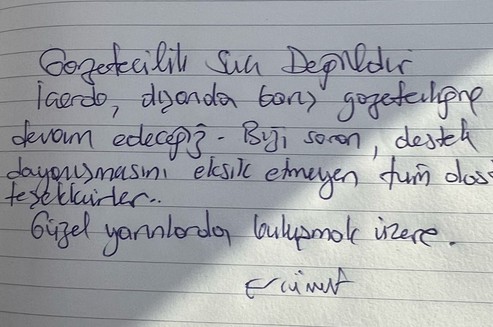 Gazetecilik Suç Değildir
İçerde, dışarıda barış gazeteciliğine
devam edeceğiz - Bizi soran, destek
dayanışmasını eksik etmeyen tüm dos
teşekkürler..
Güzel yarınlarda buluşmak üzere.